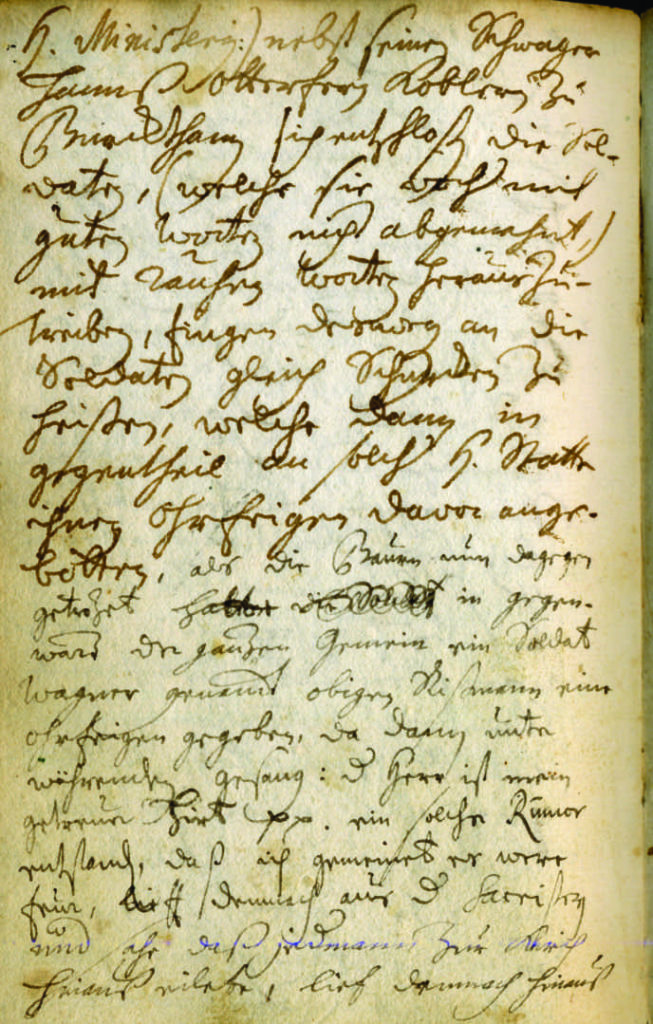 H. Ministerij:) nebst seinen Schwager
Hannß Otterfern Koblern zu
Burckthann sich entschloß die Sol-
daten, (welche sie doch mit
guten Worten nicht abgemahnt,)
mit rauhen Worten herauszu-
treiben, fingen deswegen an die
Soldaten gleich Schurken zu
heißen, welche dann in
gegentheil an solch H. Statte
ihnen Ohrfeigen davor ange-
botten, als die Bauren nun dagegen
getrozet in gegen-
ward der ganzen Gemein ein Soldat
Wagner genannt obigen Rißmann eine
Ohrfeigen gegeben, da dann unter
währenden gesang: d Herr ist mein
getreuer Hirt pp. ein solcher Rumor
entstand, daß ich gemeinet es were
feur, lieff demnach aus d Sacristey
und sahe daß jedermann zur Kirch
hinaus eilete, lief demnach hinauß